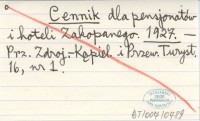 Cennik dla pensjonatów
i hoteli Zakopanego. 1927. —
Prz. Zdroj.-Kąpiel. i Przew. Turyst.
16, nr 1.